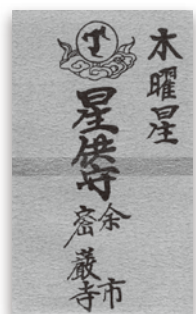 木曜星
星供守
余市
密巌寺